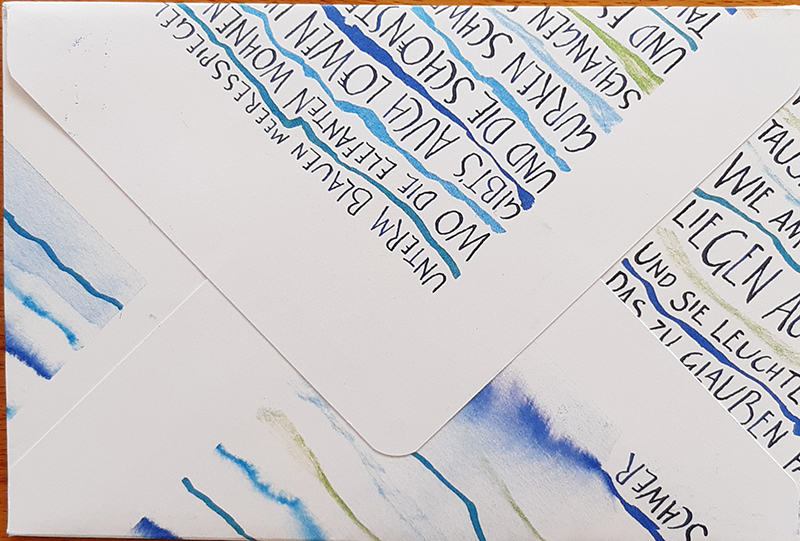 UNTERM BLAUEN MEERESSPIEGEL
WO DIE ELEFANTEN WOHNEN
GIBT'S AUCH LÖWEN
UND DIE SCHÖNSTE
GURKEN SCHWE
SCHLANGEN
UND ES
TAU
TAUS
WIE AM
LIEGEN AU
UND SIE LEUCHTE
DAS ZU GLAUBEN F
SCHWER